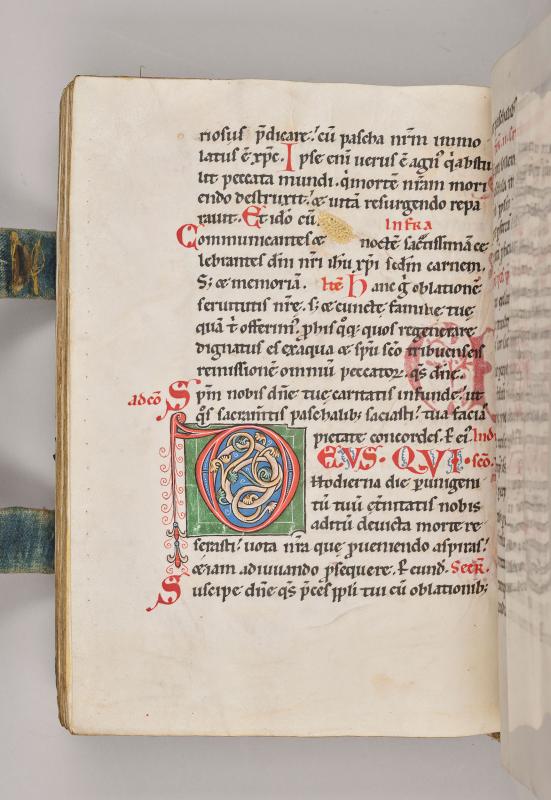 riosus p̄dicare. cū pascha nr̄m immo
latus ē xp̄c. Ipse enī uerus ē agn' q̇ abstu
lit peccata mundi. q̇ mortē nr̄am mori
endo destruxit. & uitā resurgendo repa
rauit. Et idō cū
Infra
Communicantes & noctē sac̄tissimā ce
lebrantes dn̄i nr̄i ih̄u xp̄i scd̄m carnem.
S; & memoriā. Itē Hanc g̊ oblationē
seruitutis nr̄e. s; & cuncte familie tue
quā t̄ offerim'. p̄ his q̊q; quos regenerare
dignatus es ex aqua & sp̄u sc̄o tribuens eis
remissionē omniū peccator. q̄s dn̄e.
ad cō Spm̄ nobis dn̄e tue caritatis infunde. ut
q̊s sacram̄tis paschalib; saciasti. tua facias
pietate concordes. P. ei'. In di
DEUS QUI sc̄o
Hodierna die p̱ unigeni
tū tuū et̄nitatis nobis
aditū deuicta morte re
serasti. uota nr̄a que p̄ueniendo aspiras.
&iam adiuuando p̱sequere. P. eund. Secr̄.
Suscipe dn̄e q̄s p̄ces pp̄li tui cū oblationib;